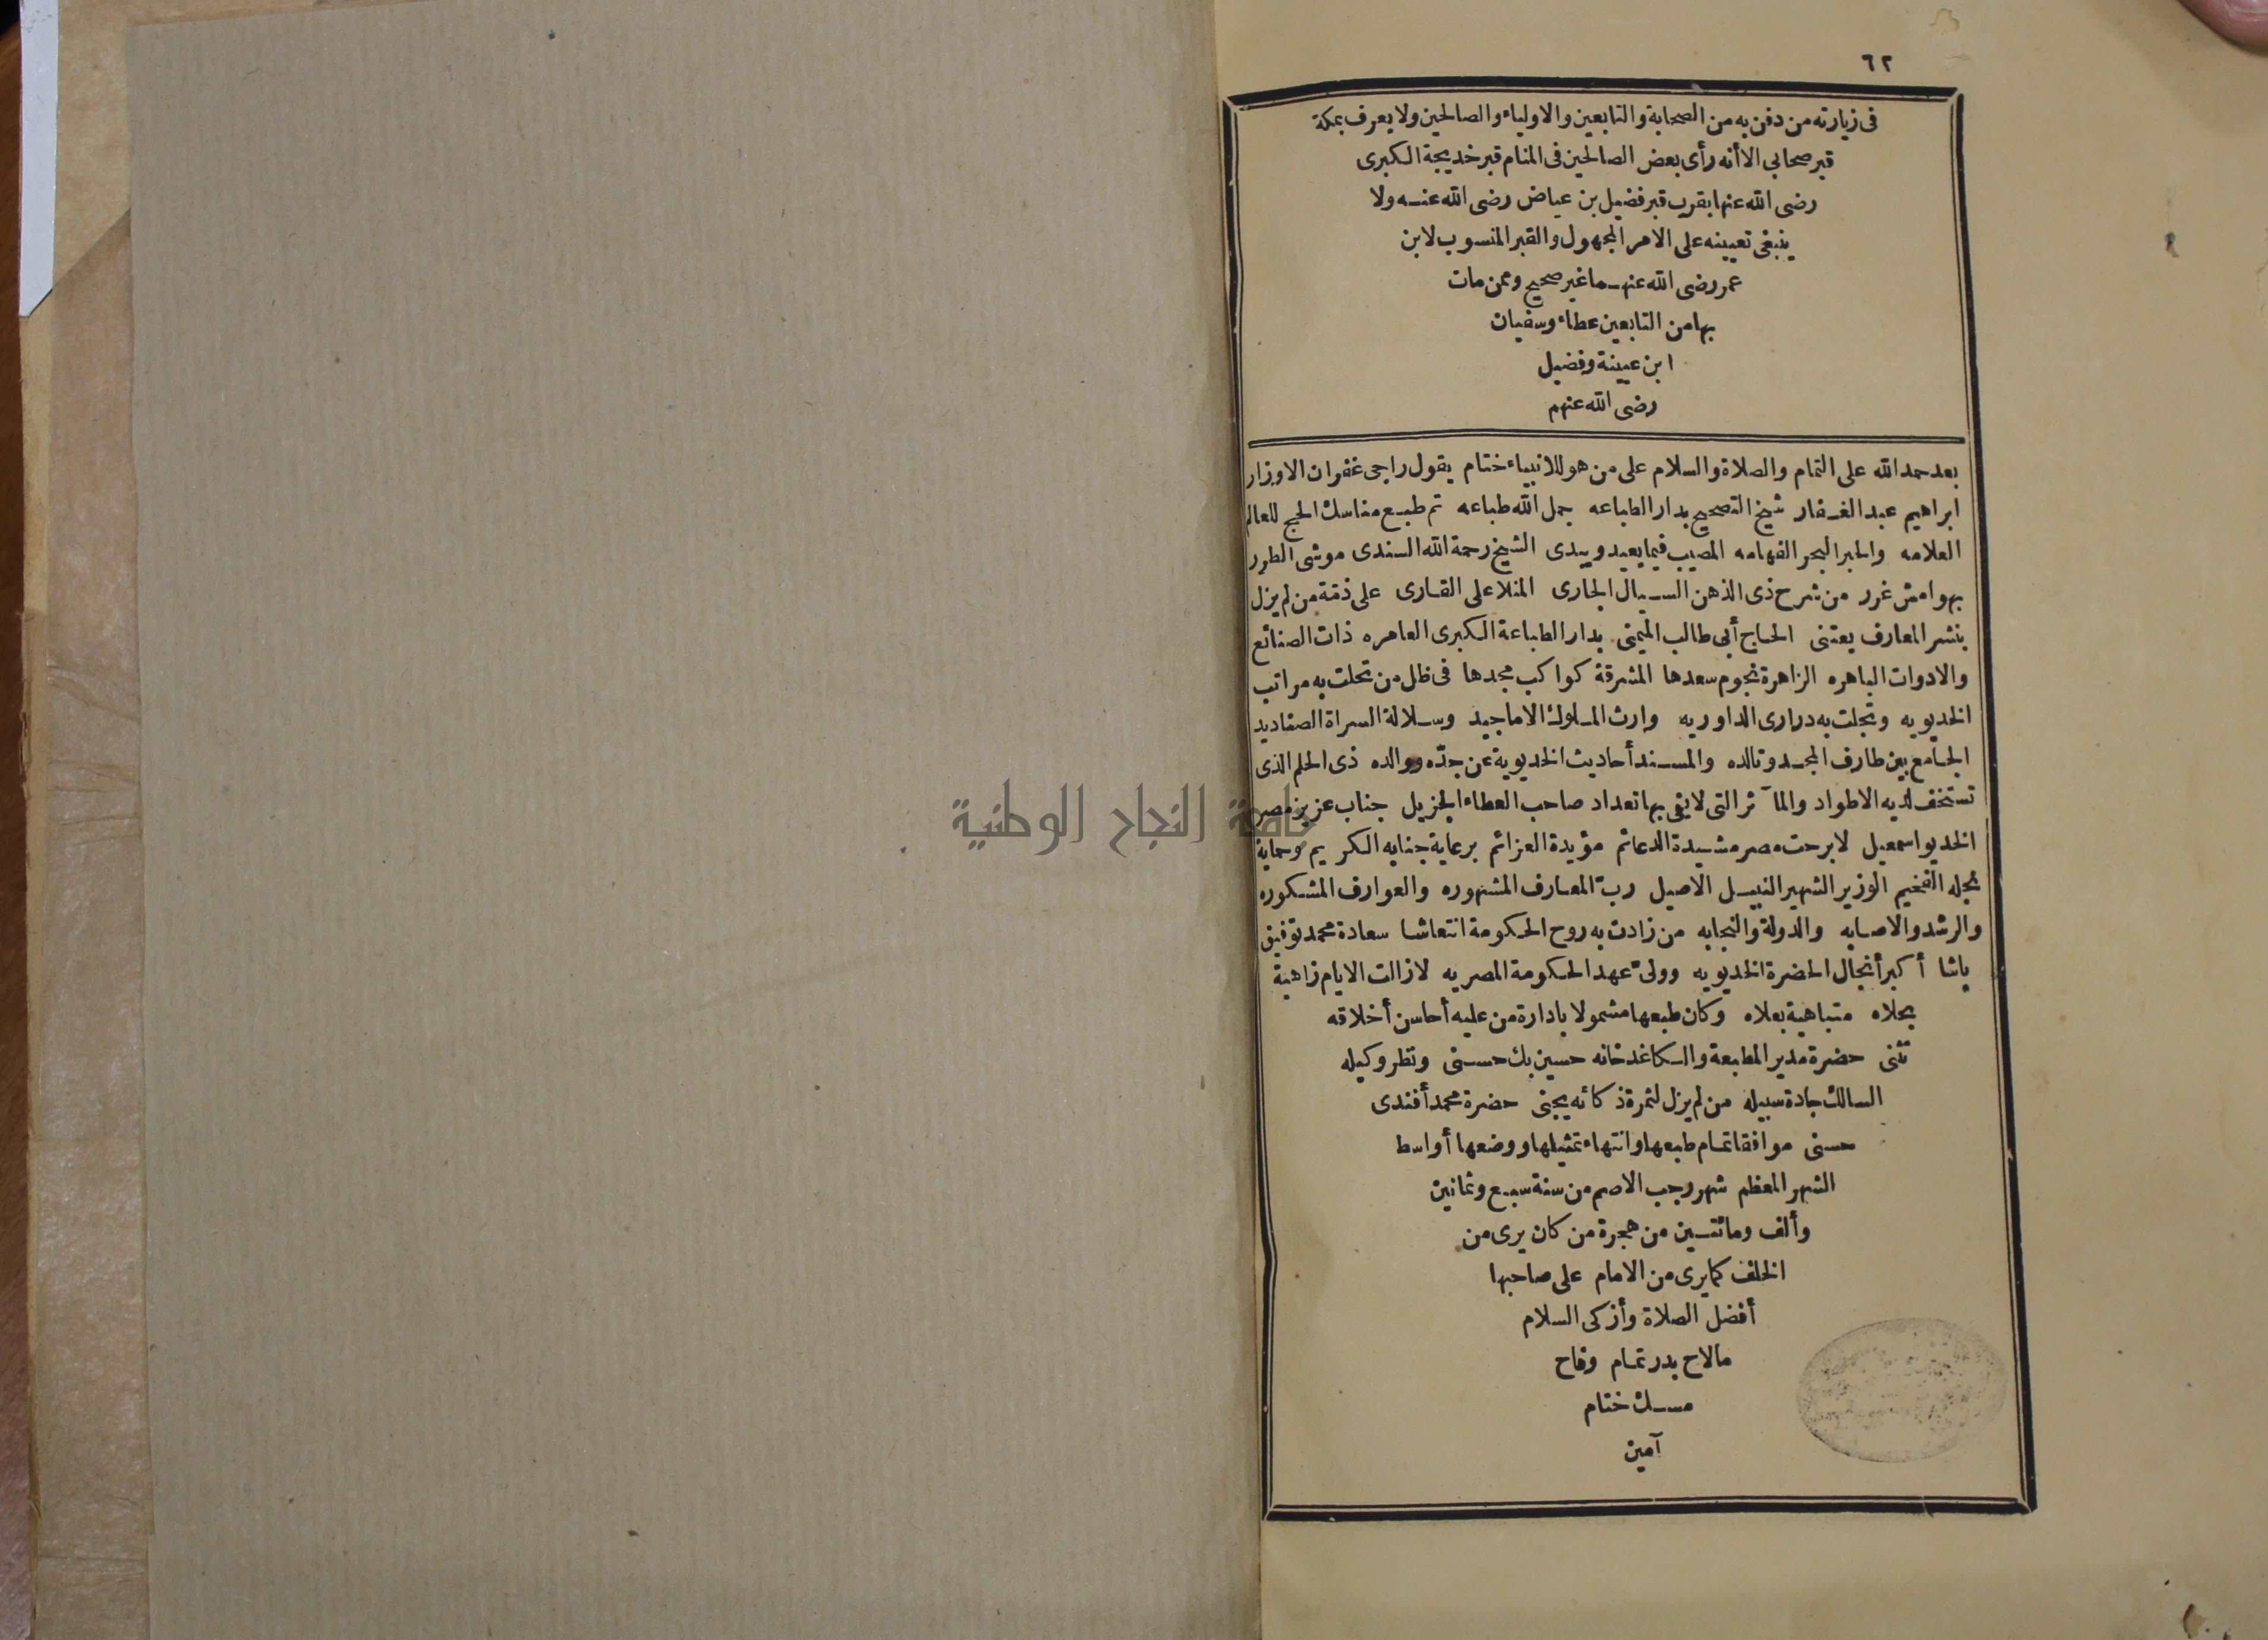 ٦٢
فى زيارته من دفن به من الصحابة والتابعين والاولياء والصالحين ولا يعرف بمكة
قبر صحابي الا أنه رأى بعض الصالحين فى المنام قبر خديجة الكبرى
رضى الله عنها بقرب قبر فضيل بن عياض رضى الله عنه ولا
ينبغى تعيينه على الامر المجهول والقبر المنسوب لابن
عمر رضى الله عنهما غير صحيح وممن مات
بها من التابعين عطاء وسفيان
ابن عيينة وفضيل
رضى الله عنهم
بعد حمد الله على التمام والصلاة والسلام على من هو للانبياء ختام يقول راجى غفران الاوزار
ابراهيم عبد الغفار شيخ التصحيح بدار الطباعه جمل الله طباعه تم طبع مناسك الحج للعالم
العلامه والحبر البحر الفهامه المصيب فيما يعيد ويبدى الشيخ رحمة الله السندى موشى الطرر
بهوامش غرر من شرح ذى الذهن السيال الجارى المنلا على القارى على ذمة من لم يزل
بنشر المعارف يعتنى الحاج أبى طالب الميمنى بدار الطباعة الكبرى العامره ذات الصنائع
والادوات الباهره الزاهرة نجوم سعدها المشرقة كواكب مجدها فى ظل من تحلت به مراتب
الخديويه وتجلت به درارى الداوريه وارث الملوك الاماجيد وسلالة السراة الصناديد
الجامع بين طارف المجد وتالده والمسند أحاديث الخديوية عن جدّه ووالده ذى الحلم الذى
تستخف لديه الاطواد والمآثر التى لا يفى بها تعداد صاحب العطاء الجزيل جناب عزيز مصر
الخديو اسمعيل لا برحت مصر مشيدة الدعائم مؤيدة العزائم برعاية جنابه الكريم وحماية
نجله الفخيم الوزير الشهير النبيل الاصيل ربّ المعارف المشهوره والعوارف المشكوره
والرشد والاصابه والدولة والنجابه من زادت به روح الحكومة انتعاشا سعادة محمد توفيق
باشا أكبر أنجال الحضرة الخديويه وولىّ عهد الحكومة المصريه لا زالت الايام زاهية
بحلاه متباهية بعلاه وكان طبعها مشمولا بادارة من عليه أحاسن أخلاقه
تثنى حضرة مدير المطبعة والكاغدخانه حسين بك حسنى ونظر وكيله
السالك جادة سبيله من لم يزل لثمرة ذكائه يجنى حضرة محمد أفندى
حسنى موافقا تمام طبعها وانتهاء تمثيلها ووضعها أواسط
الشهر المعظم شهر رجب الاصم من سنة سبع وثمانين
وألف ومائتين من هجرة من كان يرى من
الخلف كما يرى من الامام على صاحبها
أفضل الصلاة وأزكى السلام
مالاح بدر تمام وفاح
مسك ختام
آمين
جامعة النجاح الوطنية